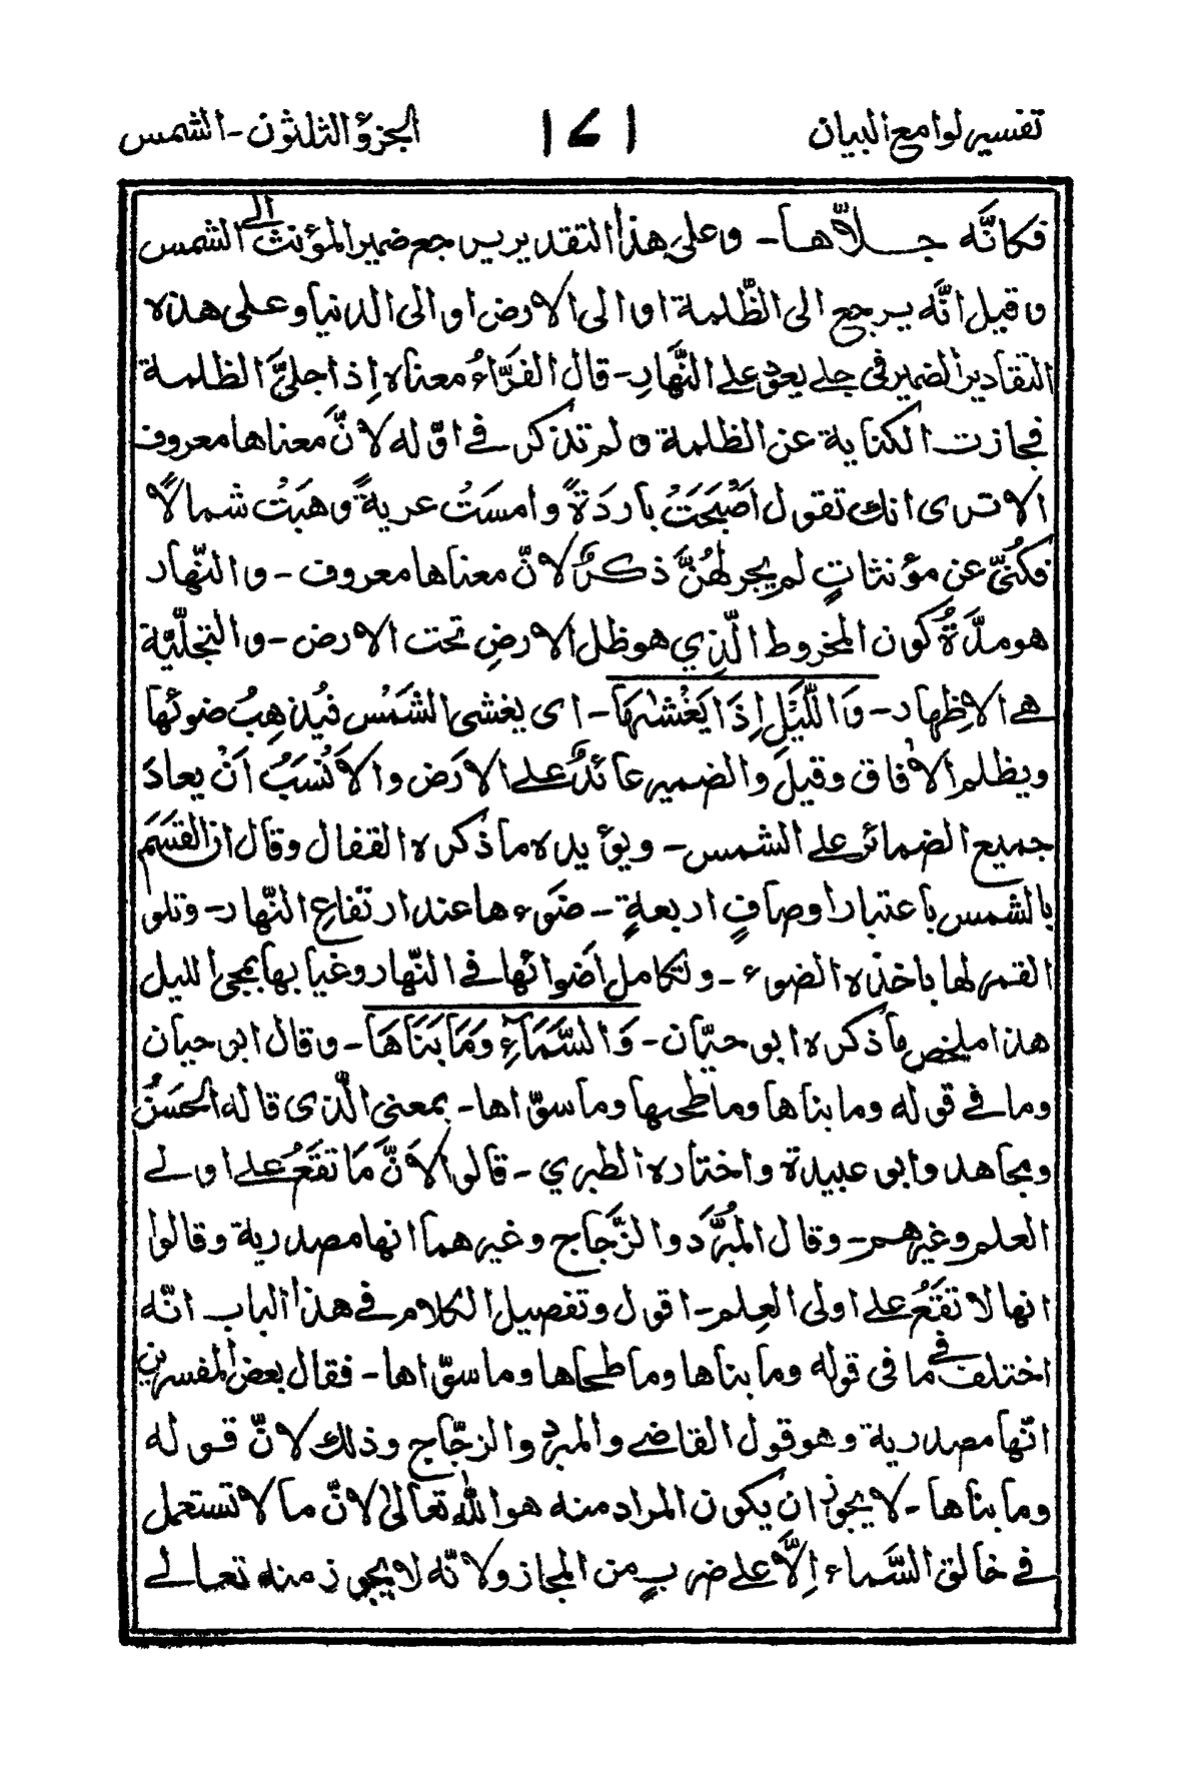 تفسير لوامع البيان ١٧١ الجزؤ الثلثون - الشمس
فكانَّه جلاّها - وعلى هذا التقدير يرجع ضمير المؤنث الى الشمس
وقيل انَّه يرجع الى الظّلمة او الى الارض او الى الدنيا وعلى هذه
التقادير الضمير في جلى يعود على النَّهارِ - قال الفَرَّاءُ معناه اِذا جليَّ الظلمة
فجازت الكناية عن الظلمة ولم تذكر في اوّله لانَّ معناها معروف
الا ترى انك تقول اَصْبَحَتُ باردَةً وامسَتُ عريةً وهَبَتُ شمالاً
فكُنّيَ عن مؤنثاتٍ لم يجر لهُنَّ ذكرٌ لانّ معناها معروف - والنّهار
هو مدّةُ كون المخروط الّذي هو ظل الارضِ تحت الارض - والتجلّية
هي الاظهار - وَاللَّيْلِ اِذَا يَغْشٰىهَا - اى يغشى الشَمْس فيُذهِبُ ضوئها
ويظلم الآفاق وقيلَ والضمير عَائدٌ على الارَض والاَنُسَبُ اَنْ يعادَ
جميع الضمائر على الشمس - ويؤيده ما ذكره القفال وقال ان القَسَم
بالشمس باعتبار اوصافٍ اربعةٍ - ضَوء ها عند ارتفاع النّهار - وتلو
القمر لها باخذه الضوء - وتكامل اضَوائها في النّهار وغيابها بمجئ الليل
هذا ملخص ما ذكره ابو حيّان - وَالسَّمَآءِ وَمَا بَنَاهَا - وقال ابو حيان
وما في قوله وما بناها وما طحىها وما سوّاها - بمعنى الّذى قاله الحَسَنُ
ومجاهد وابو عبيدة واختاره الطبري - قالوا لاَنَّ مَا تقَعُ على اولى
العلم وغيرهم - وقال المُبرَّد والزَّجاج وغيرهما انها مصدرية وقالوا
انها لا تقَعُ على اولى العِلم - اقول وتفصيل الكلام في هذا الباب انّه
اختلف في ما فى قوله وما بناها وما طحاها وما سوّاها - فقال بعض المفسرين
انّها مصدرية وهو قول القاضى والمبرد والزجّاج وذلك لانّ قوله
وما بناها - لا يجوز ان يكون المراد منه هو الله تعَالىٰ لانّ ما لا تستعمل
في خالق السَّماء اِلاَّ على ضربٍ من المجاز ولانّه لا يجوز منه تعالى